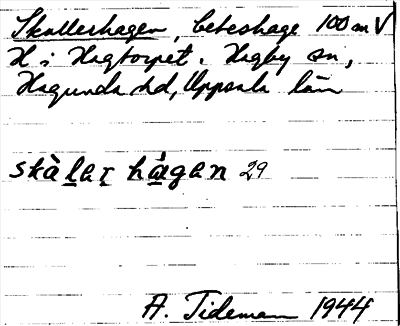 Skallerhagen, beteshage 100 m V
H i Hagtorpet. Hagby sn,
Hagunda hd, Uppsala län
skàl̲er̲ há̲gen 29
A. Tideman 1944